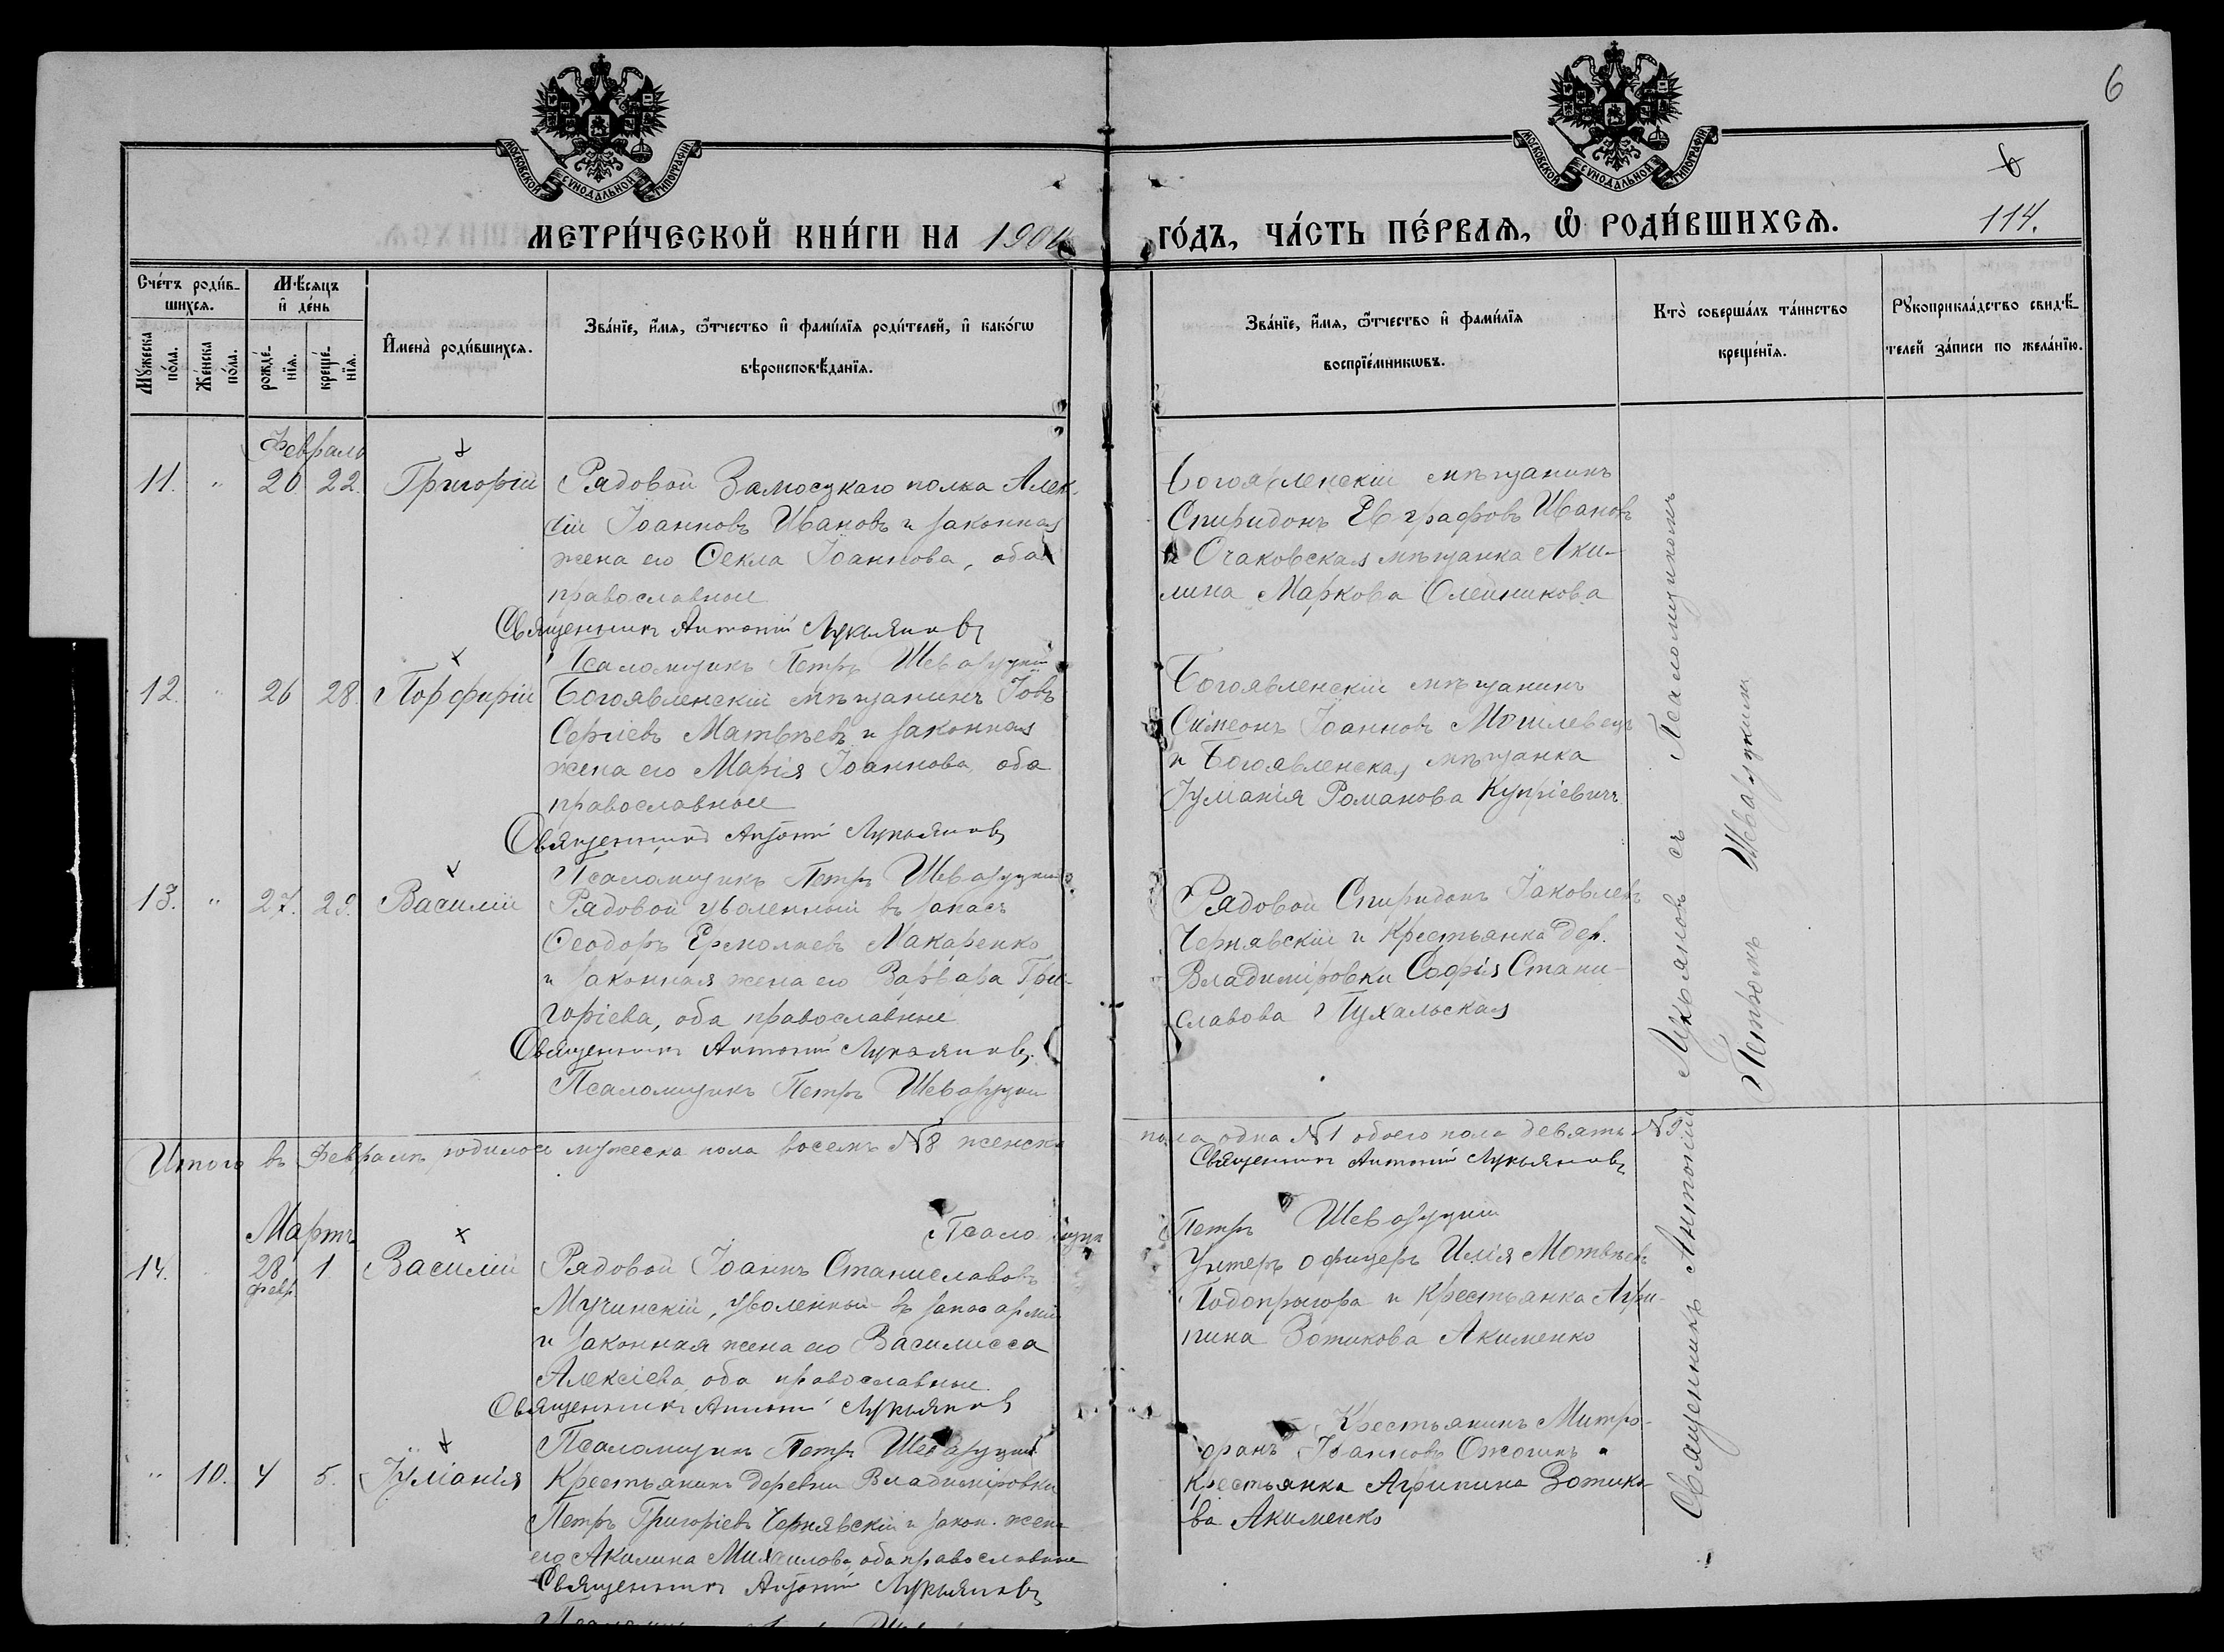 6
МОСКОВСКОЙ СУНОДАЛЬНОЙ ТИПОГРАФІИ
МОСКОВСКОЙ СУНОДАЛЬНОЙ ТИПОГРАФІИ
6
114.
МЕТРИ́ЧЕСКОЙ КНИ́ГИ НА 190
ГО́ДЪ, ЧА́СТЬ ПЕ́РВАѦ, Ѡ҆ РОДИ́ВШИХСѦ.
Сче́тъ роди́в-
шихсѧ.
Мꙋ́жеска по́ла.
Же́нска по́ла.
Мѣ́сѧцъ
и҆ де́нь
рожде́-
нїѧ.
креще́-
нїѧ.
И҆мена̀ роди́вшихсѧ.
Зва́нїе, и҆́мѧ, ѻ҆́тчество и҆ фами́лїѧ роди́телей, и҆ како́гѡ
вѣроисповѣ́данїѧ.
Зва́нїе, и҆́мѧ, ѻ҆́тчество и҆ фами́лїѧ
воспрїе́мникѡвъ.
Кто̀ соверша́лъ та́инство
креще́нїѧ.
Рꙋкоприкла́дство свидѣ́-
телей за́писи по жела́нїю.
Февраль
11. " 20 22. Григорій
Рядовой Замосцкаго полка Алек-
сій Іоанновъ Ивановъ и законная
жена его Ѳекла Іоаннова, оба
православные
Священникъ Антоній Лукьяновъ
Псаломщикъ Петръ
Богоявленскій мѣщанинъ
Спиридонъ Евграфовъ Ивановъ
и Очаковская мѣщанка Аки-
лина Маркова Олейникова
12. " 26 28. Порфирій
Богоявленскій мѣщанинъ Іовъ
Сергіевъ Матвѣевъ и законная
жена его Марія Іоаннова, оба
православные
Священникъ Антоній Лукьяновъ
Псаломщикъ Петръ
Богоявленскій мѣщанинъ
Симеонъ Іоанновъ Могилевецъ
и Богоявленская мѣщанка
Іуліанія Романова Купріевичъ
13. " 27. 29. Василій
Рядовой уволенный въ запасъ
Ѳеодоръ Ермолаевъ Макаренко
и законная жена его Варвара Гри-
горіева, оба православные
Священникъ Антоній Лукьяновъ
Псаломщикъ Петръ
Рядовой Спиридонъ Іаковлевъ
Чернявскій и Крестьянка дер.
Владиміровки Софія Стани-
славова Пухальская
Итого въ Февралѣ родилось мужеска пола восемь №8 женска
пола одна №1 обоего пола девять №9
Священникъ Антоній Лукьяновъ
Псаломщикъ
Петръ
Мартъ
14. 28 Февр. 1 Василій
Рядовой Іоаннъ Станиславовъ
Мучинскій, уволенный въ запас арміи
и законная жена его Василисса
Алексіева, оба православные
Священникъ Антоній Лукьяновъ
Псаломщикъ Петръ
Унтеръ офицеръ Илія Матвѣевъ
Подопригора и Крестьянка Агри-
пина Зотикова Акименко
" 10. 4 5. Іуліанія
Крестьянинъ деревни Владиміровки
Петръ Григоріевъ Чернявскій и закон. жена
его Акилина Михаилова, оба православные
Священникъ Антоній Лукьяновъ
Крестьянинъ Митро-
фанъ Іоанновъ Ожогинъ и
Крестьянка Агрипина Зотико-
ва Акименко
Священникъ Антоній Лукьяновъ съ Псаломщикомъ
Петромъ